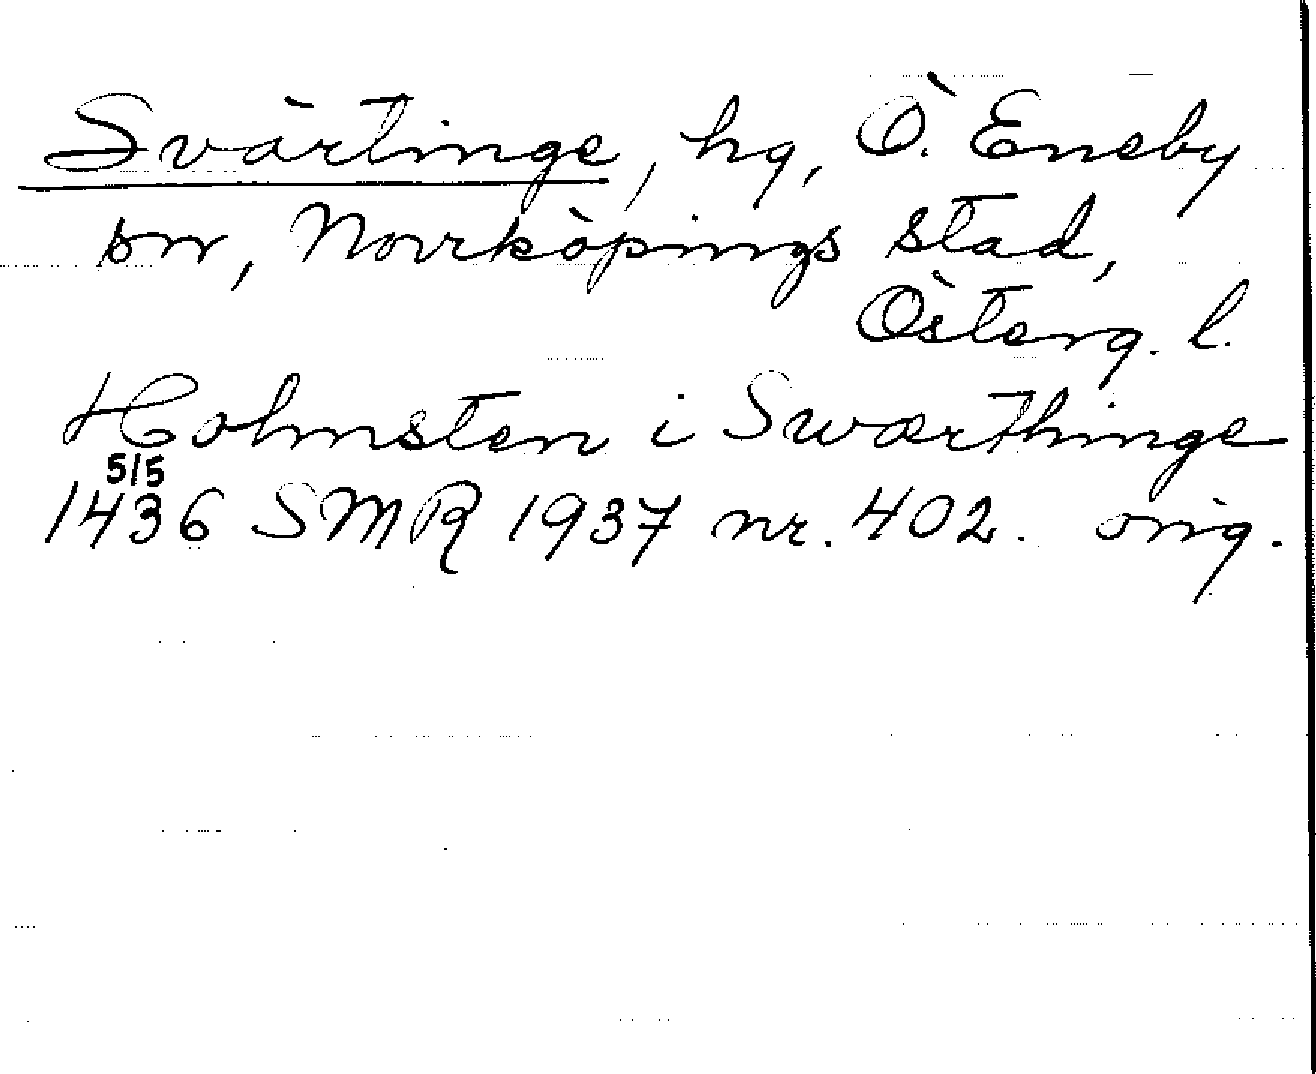 Svärtinge, hg, Ö. Eneby
sn, Norrköpings stad,
Österg. l.
Holmsten i Swærthinge
5/5
1436 SMR 1937 nr. 402. orig.